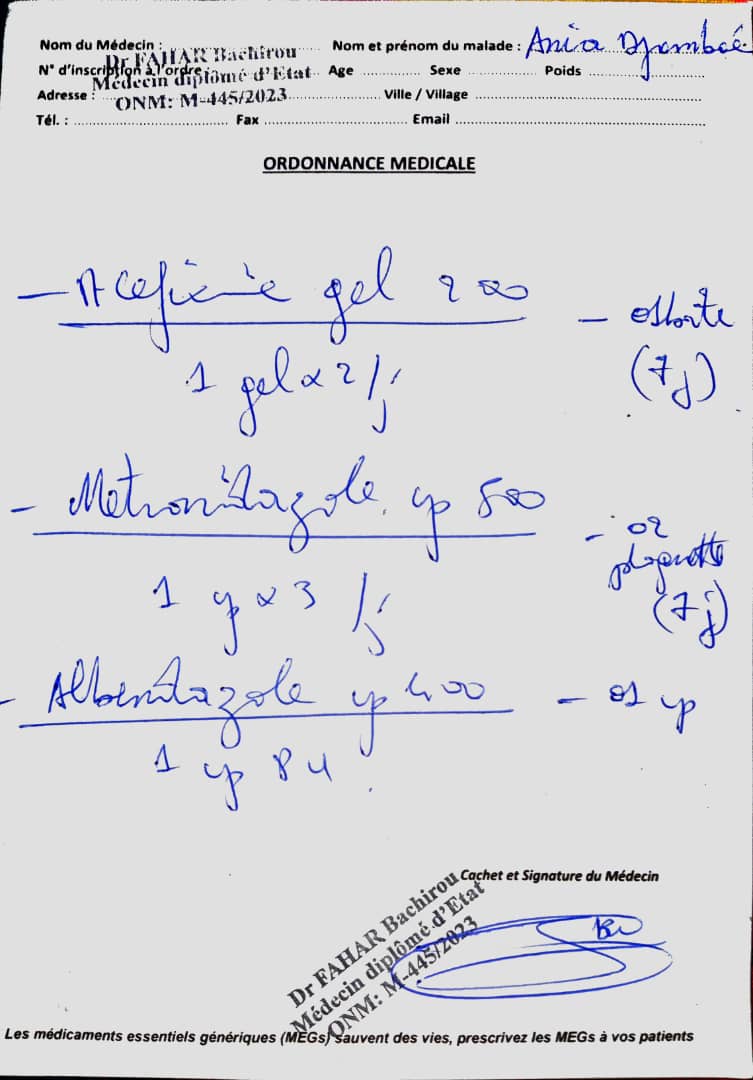 Nom du Médecin : Dr FAHAR Bachirou Nom et prénom du malade : Ania Djamboé
N° d'inscription à l'ordre : Médecin diplômé d'Etat Age Sexe Poids
Adresse : ONM: M-445/2023 Ville / Village
Tél. : Fax Email
ORDONNANCE MEDICALE
gel 200 – 01 boîte
1 gel x 2 /j (7j)
- Metronidazole cp 500 - 02 plaquette
1 cp x 3 /j (7j)
- Albendazole cp 400 - 01 cp
1 cp PU
Cachet et Signature du Médecin
Dr FAHAR Bachirou
Médecin diplômé d'Etat
ONM: M-445/2023
Les médicaments essentiels génériques (MEGs) sauvent des vies, prescrivez les MEGs à vos patients